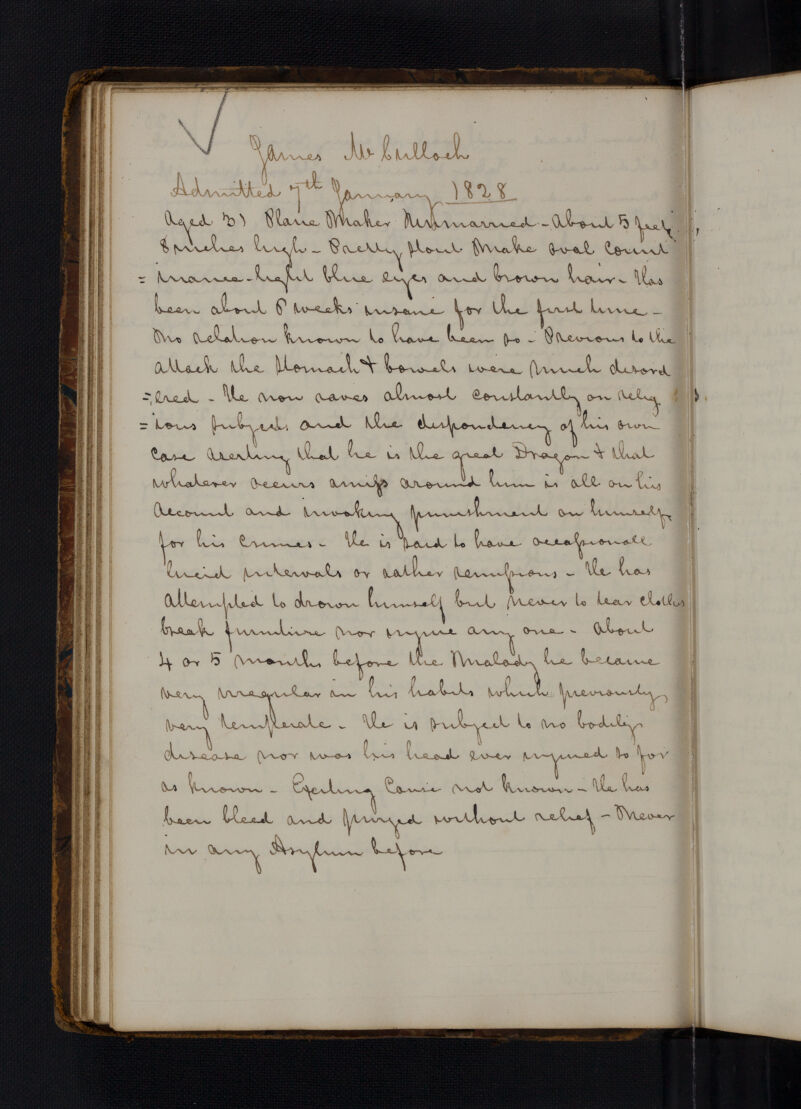 James McCulloch
Admitted 7th January 1828
Aged 31 Plane Maker Unmarried - About 5 feet
8 inches high - Pretty stout Make oval Count
= enance - light blue eyes and brown hair - Has
been about 6 weeks insane for the first time -
No relation known to have been so - Previous to the
attack the stomach & bowels were much disord
=ered - He now raves almost constantly on relig
=ious subjects and the despondency of his own
Case asserting that he is the great Dragon & that
whatever occurs amiss around him is all on his
Account and invoking punishment on himself
for his Crimes - He is said to have occassionall
lucid intervals or rather remissions - He has
attempted to drown himself but never to tear clothes
break furniture nor injure any one - About
4 or 5 months before the Malady he became
very irregular in his habits which previously
very temperate - He is subject to no bodily
disease nor was his head ever injured so far
as known - Exciting Cause not known - He has
been bleed and purged without relief - Never
in any Asylum before